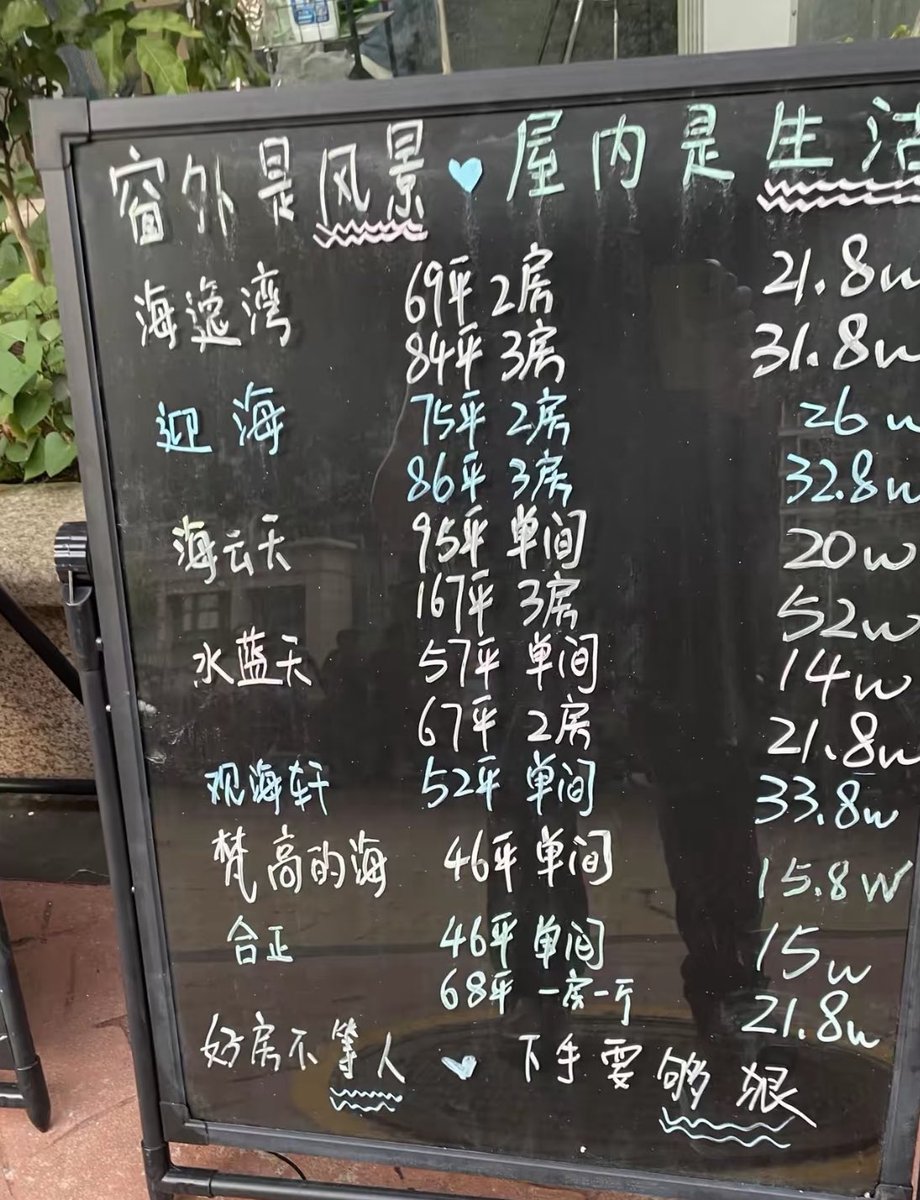 窗外是风景 屋内是生活
海逸湾 69平 2房 21.8w
84平 3房 31.8w
迎海 75平 2房 26w
86平 3房 32.8w
海云天 95平 单间 20w
167平 3房 52w
水蓝天 57平 单间 14w
67平 2房 21.8w
观海轩 52平 单间 33.8w
梵高的海 46平 单间 15.8W
合正 46平 单间 15w
68平 一房一厅 21.8w
好房不等人 下手要够狠